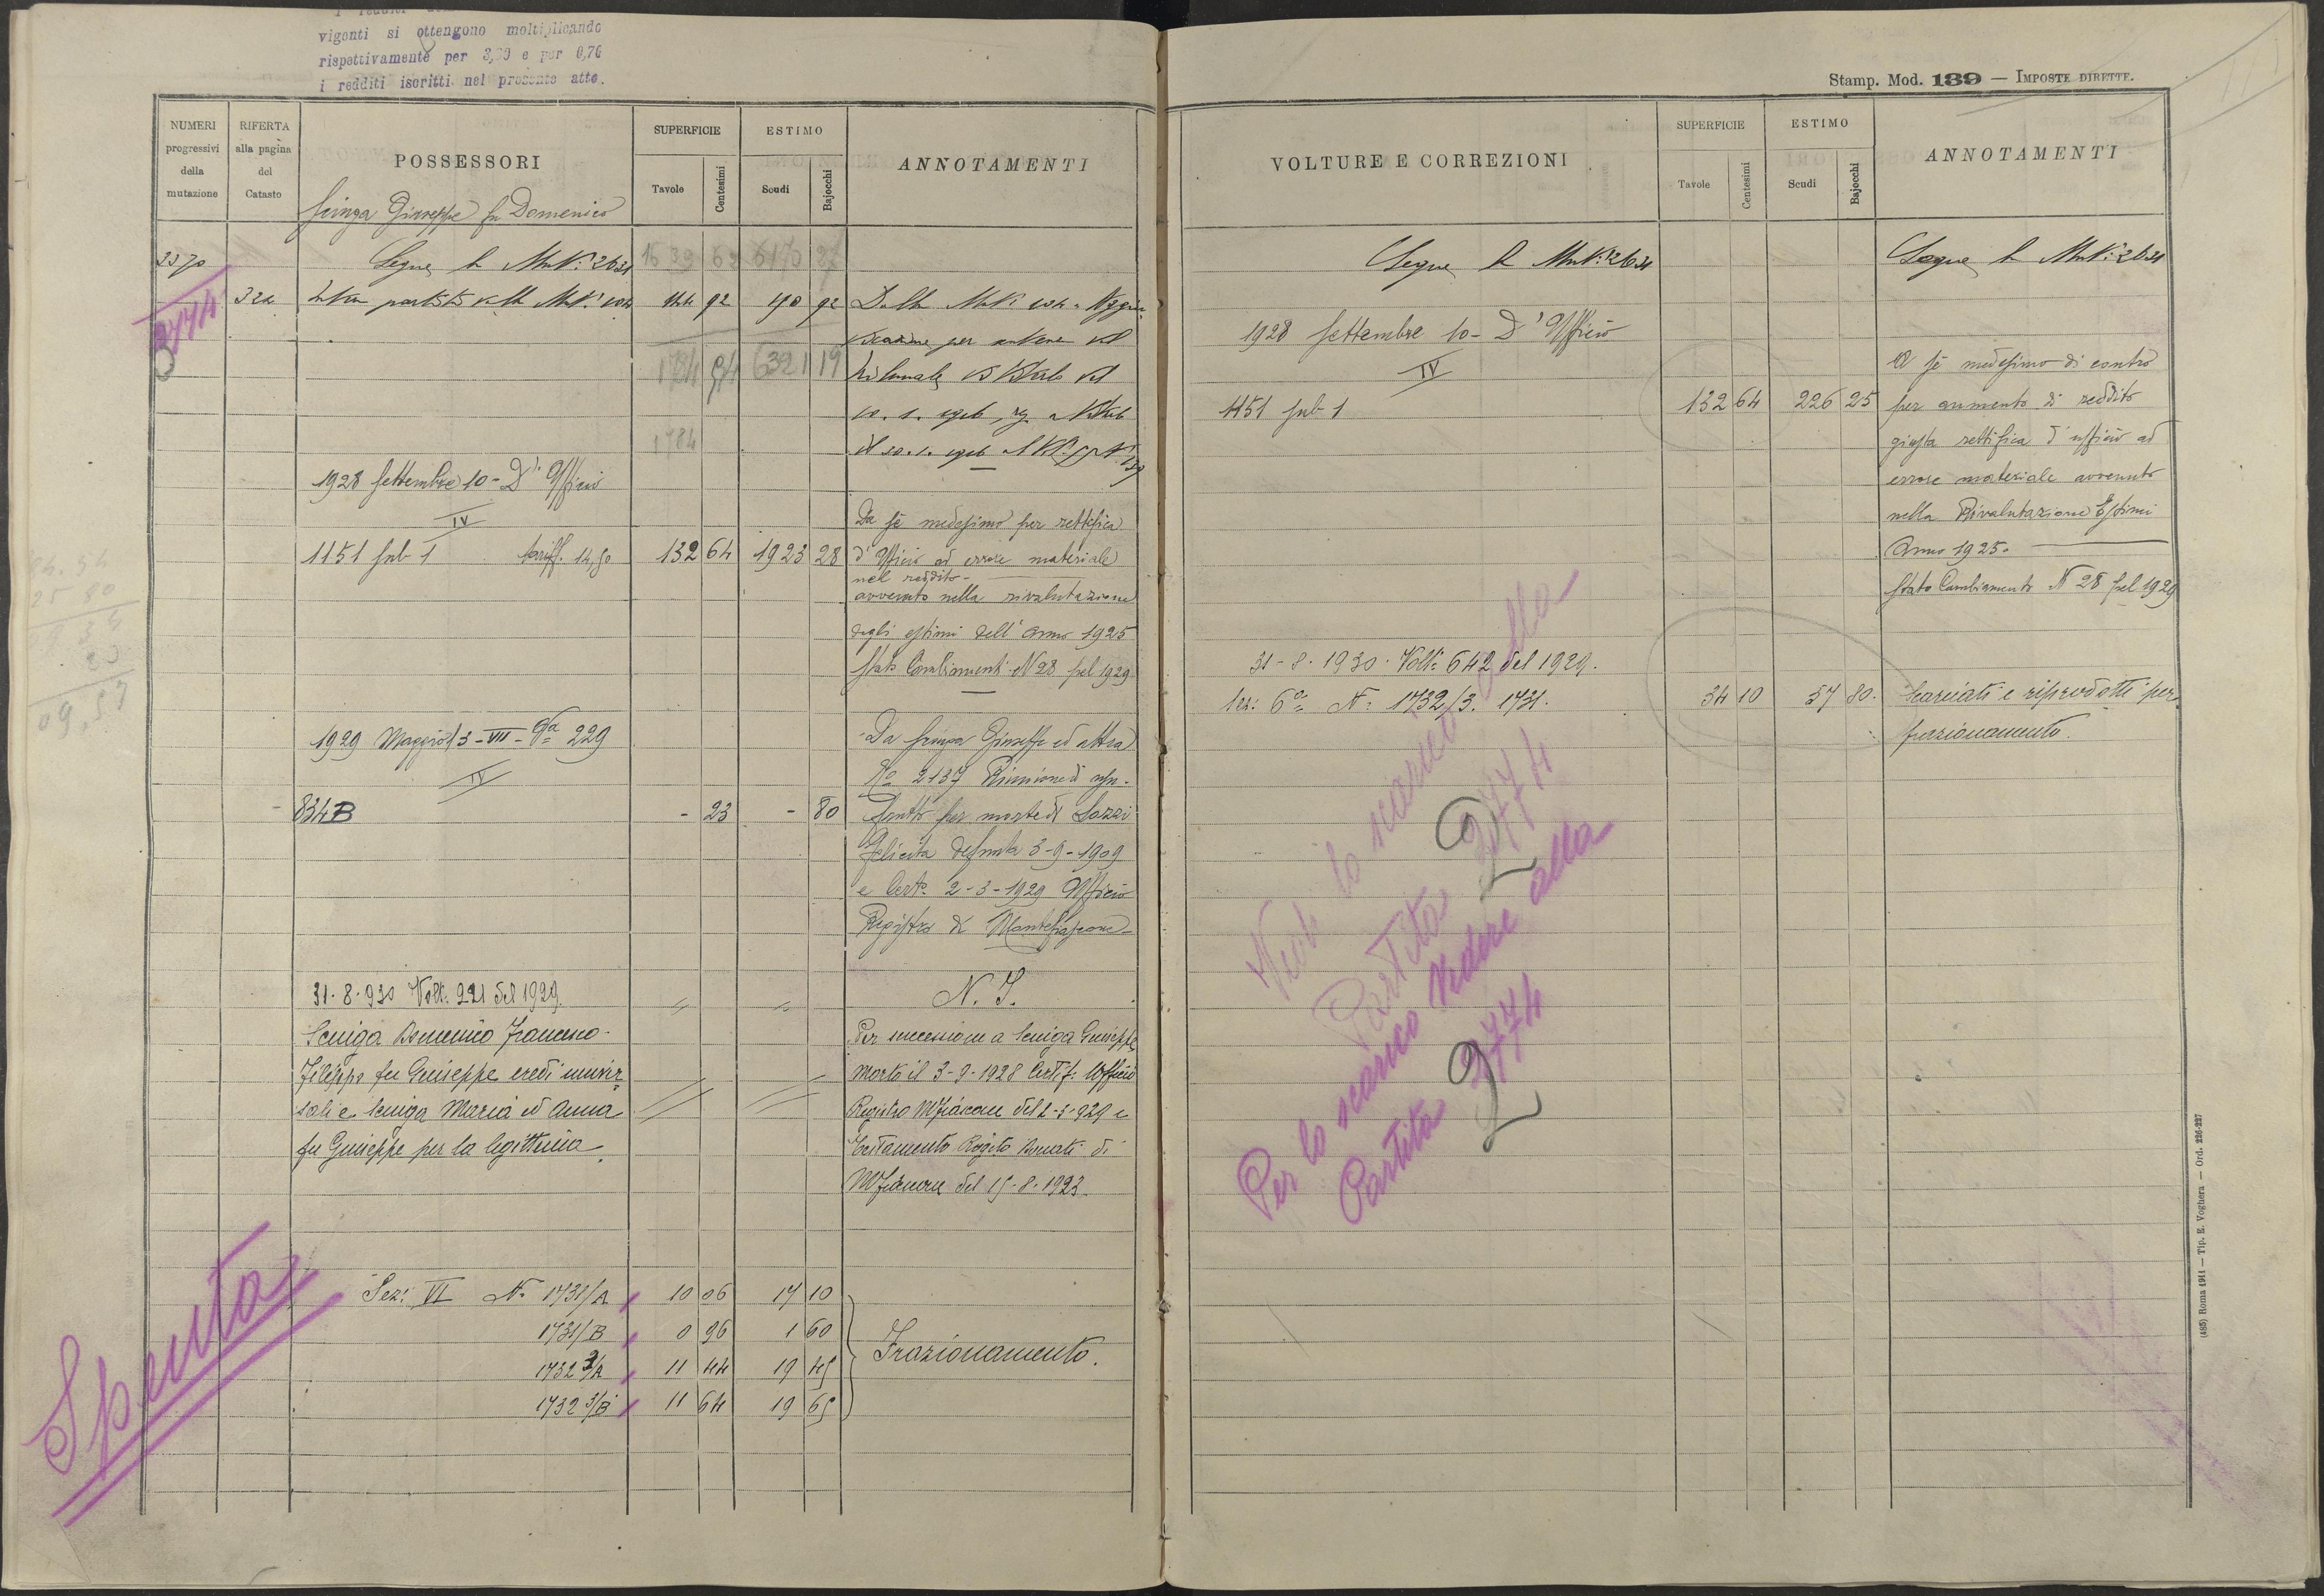 vigenti si ottengono moltiplicando
rispettivamente per 3,  e per 0,76
i redditi iscritti nel presente atto.
Stamp. Mod. 139 — IMPOSTE DIRETTE.
NUMERI progressivi della mutazione
RIFERTA alla pagina del Catasto
POSSESSORI
SUPERFICIE
Tavole
Centesimi
ESTIMO
Scudi
Bajocchi
ANNOTAMENTI
Giuseppe fu Domenico
2370
Segue la
324
144 92
190 92
1784
1928 Settembre 10 - D'Ufficio
IV
1151 sub 1 tariff. 14,50 132 64 1923 28
Da sè medesimo per rettifica
d'Ufficio ad errore materiale
nel reddito -
avvenuto nella rivalutazione
degli estimi dell'anno 1925
Stato Cambiamenti N 28 pel 1929
1929 Maggio 13 - VII - 229
IV
834 B - 23 - 80
Da Giuseppe ed altra
No 2137 Riunione di usu-
frutto per morte di Lozzi
Felicita defunta 3-9-1909
e Cert. 2-3-1929 Ufficio
Registro di Montefiascone
31.8.930 Volt. 221 del 1929.
Sciuga Domenico Francesco
Filippo fu Giuseppe eredi univer
sali e Sciuga Maria ed Anna
fu Giuseppe per la legittima
N. S.
Per successione a Sciuga Giuseppe
morto il 3-9-1928 Certif. Ufficio
Registro Mfiascone del 2-3-929 e
Testamento Rogito Donati di
Mfiascone del 15-8-1923
Sez: VI N. 1731/A 10 06 17 10
1731/B 0 96 1 60
1732 3/A 11 44 19 45
1732 3/B 11 64 19 65
Frazionamento.
Spenta
2774
VOLTURE E CORREZIONI
SUPERFICIE
Tavole
Centesimi
ESTIMO
Scudi
Bajocchi
ANNOTAMENTI
Segue la
Segue la
1928 Settembre 10 - D'Ufficio
IV
1151 sub 1 132 64 226 25
A sè medesimo di contro
per aumento di reddito
giusta rettifica d'ufficio ad
errore materiale avvenuto
nella Rivalutazione Estimi
Anno 1925.
Stato Cambiamenti N 28 pel 1929
31-8-1930. Volt: 642 del 1929.
Sez: 6a N: 1732/3. 1731. 34 10 57 80.
Scaricati e riprodotti per
frazionamento.
Vedi lo scarico alla
Partita 2774
Per lo scarico vedere alla
Partita 2774
(485) Roma 1911 — Tip. E. Voghera — Ord. 226-227